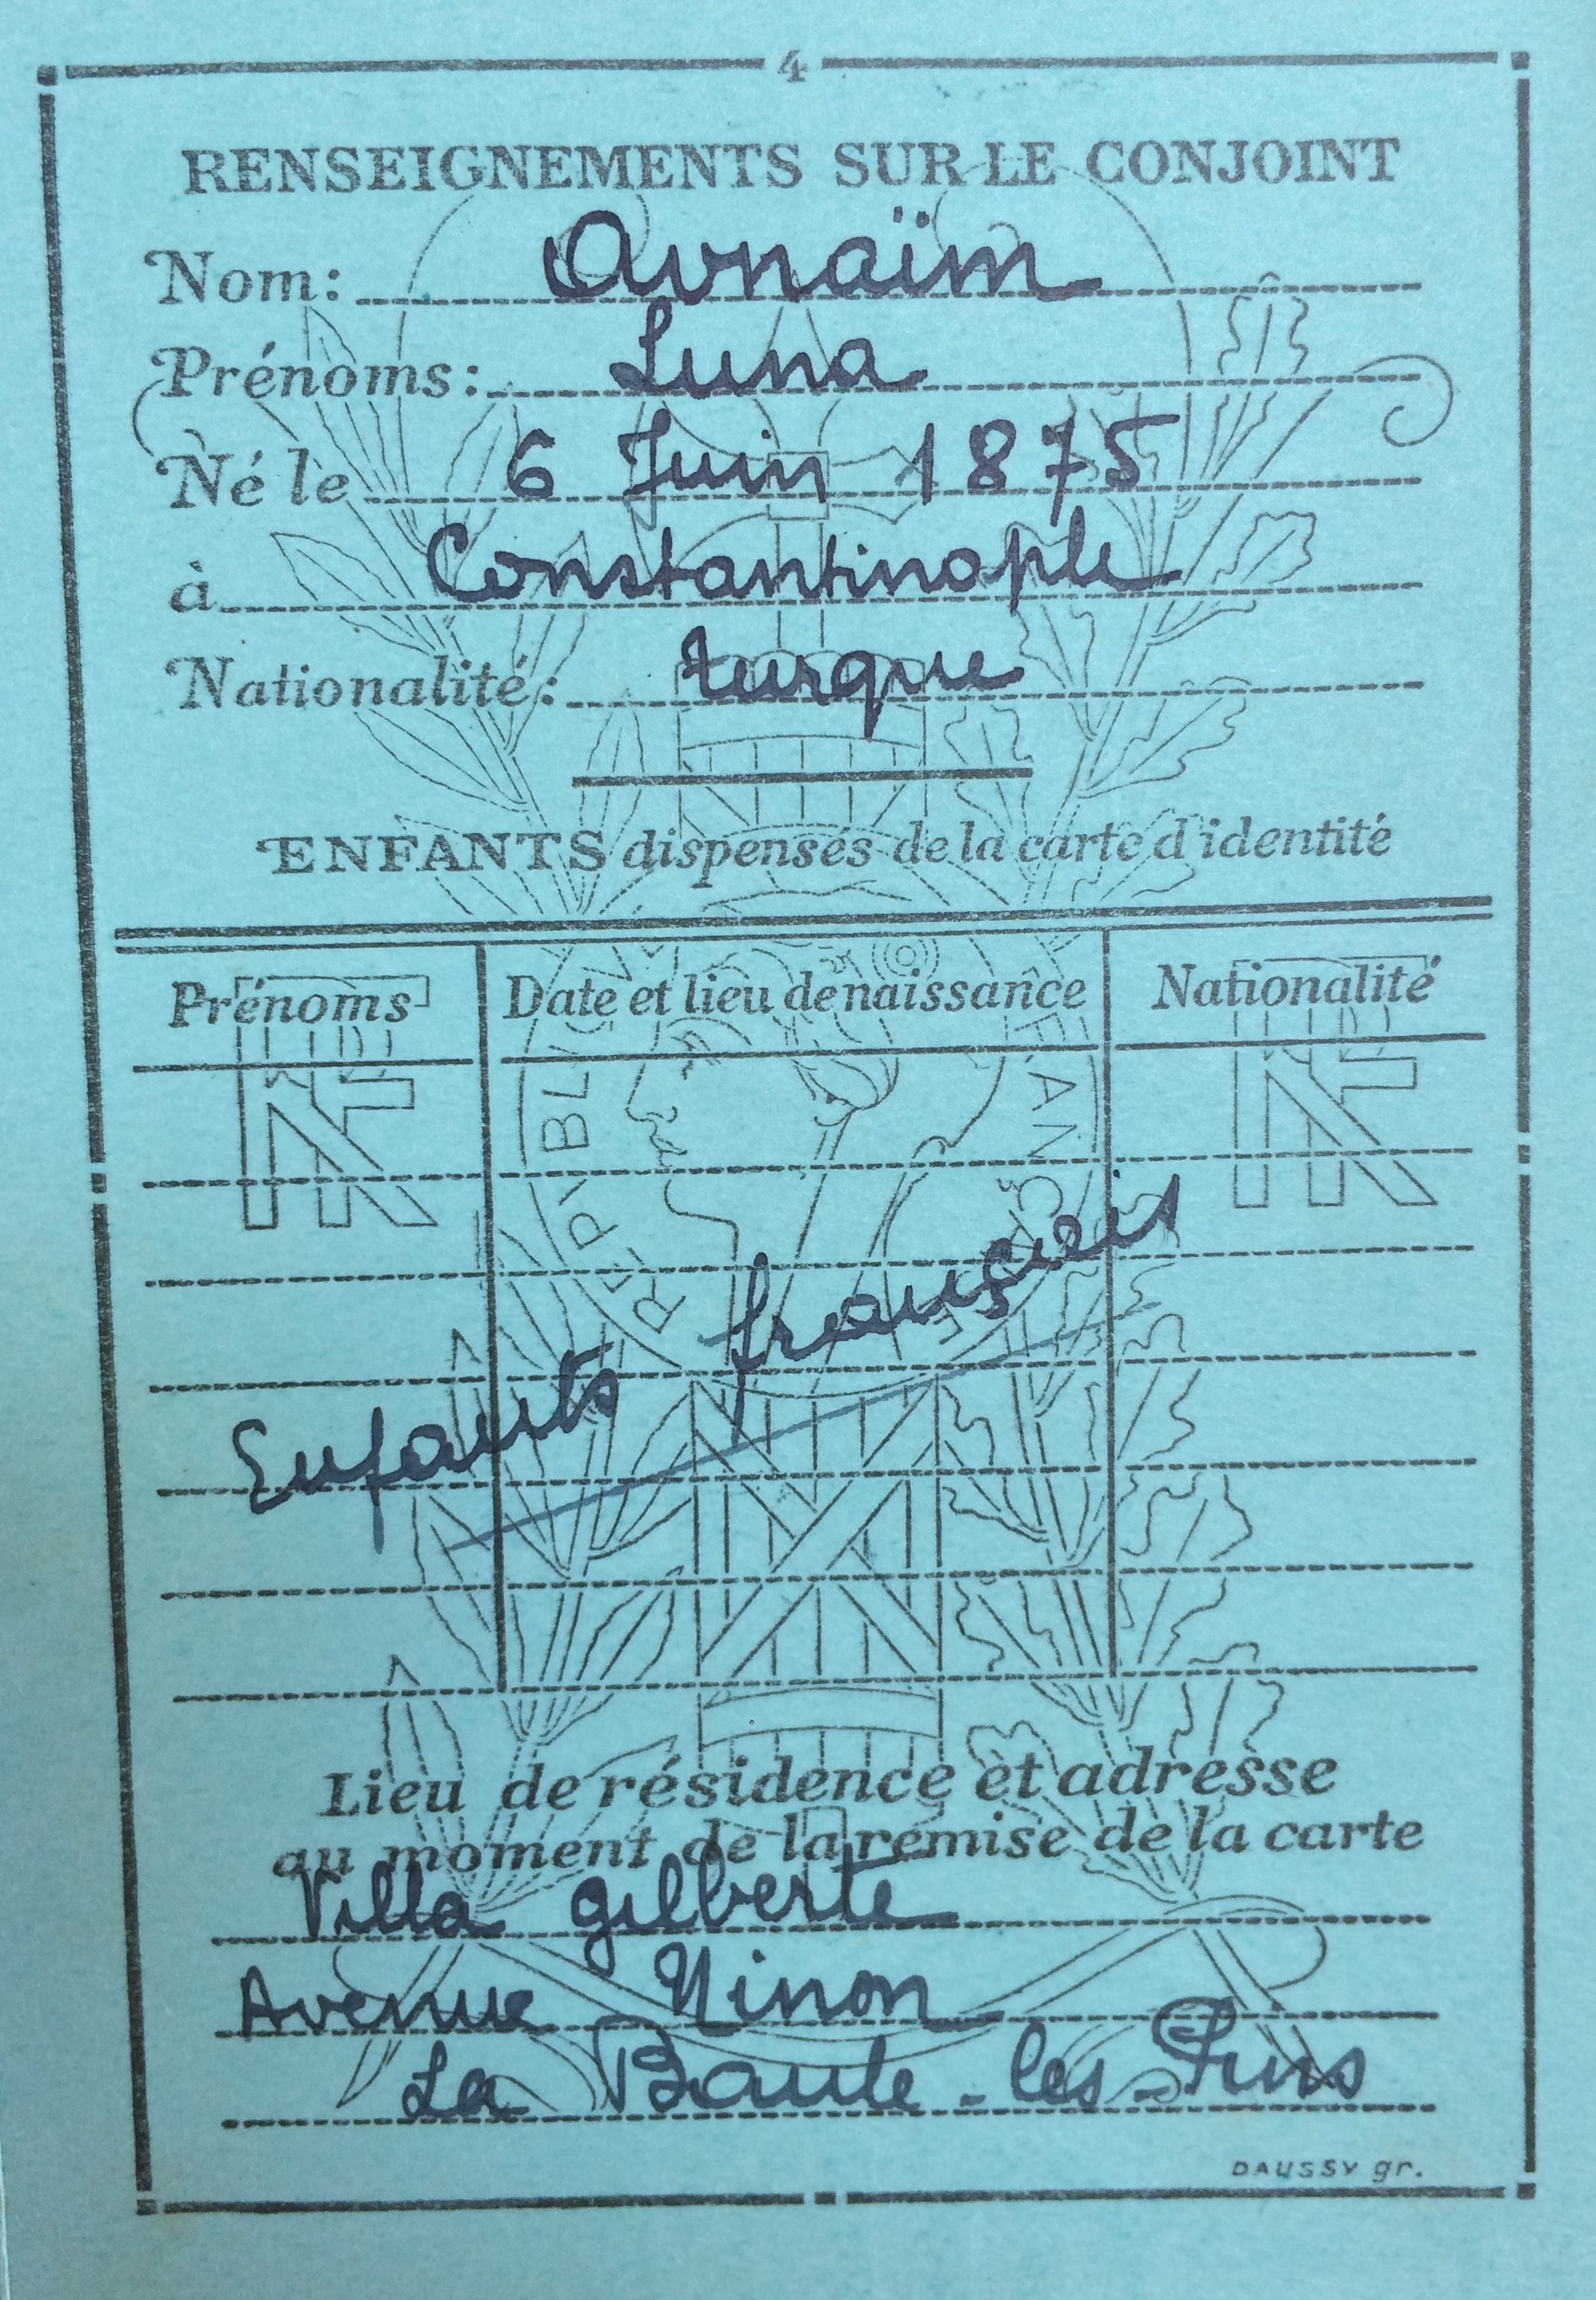 4
RENSEIGNEMENTS SUR LE CONJOINT
Nom: Avnaïm
Prénoms: Luna
Né le 6 Juin 1875
à Constantinople
Nationalité: turque
ENFANTS dispensés de la carte d'identité
Prénoms Date et lieu de naissance Nationalité
RF RF
RÉPUBLIQUE FRANÇAISE
Enfants français
Lieu de résidence et adresse
au moment de la remise de la carte
Villa Gilberte
Avenue Ninon
La Baule-les-Pins
DAUSSY gr.